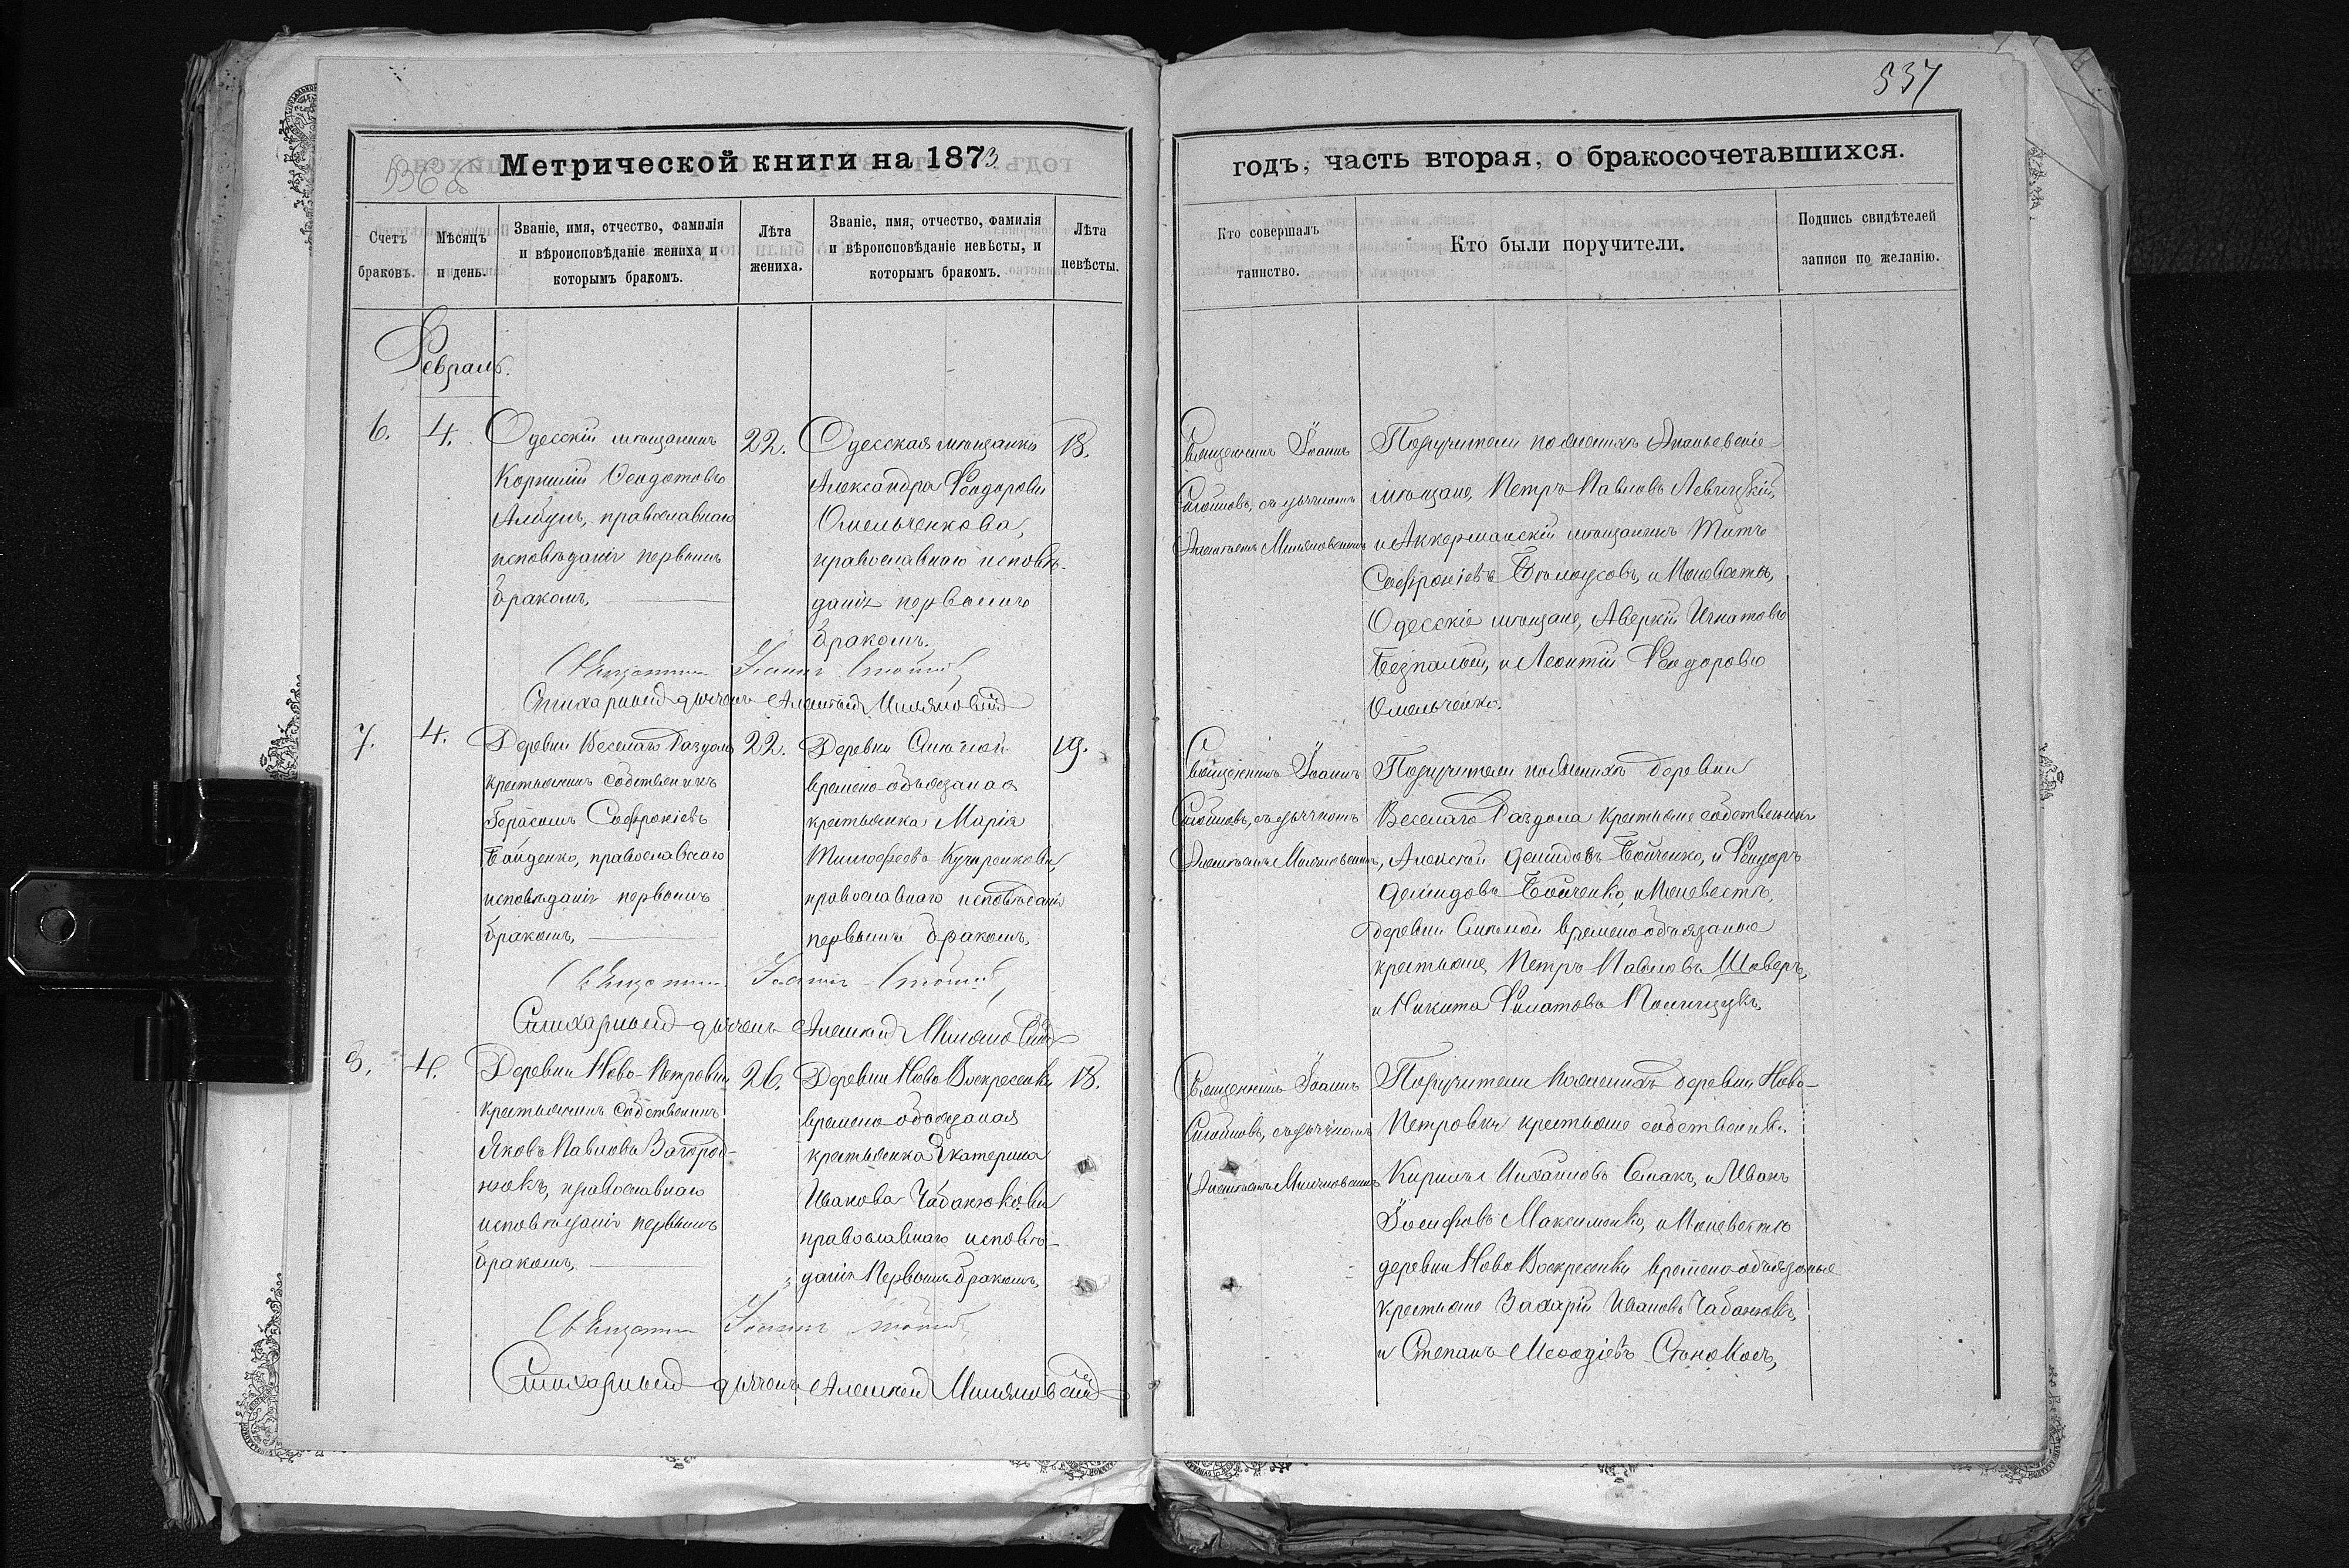 537
536 об
Метрической книги на 1873
годъ, часть вторая, о бракосочетавшихся.
Счетъ браковъ.
Мѣсяцъ и день.
Званіе, имя, отчество, фамилія
и вѣроисповѣданіе жениха и
которымъ бракомъ.
Лѣта
жениха.
Званіе, имя, отчество, фамилія
и вѣроисповѣданіе невѣсты, и
которымъ бракомъ.
Лѣта
невѣсты.
Кто совершалъ
таинство.
Кто были поручители.
Подпись свидѣтелей
записи по желанію.
Февраль.
6.
4.
Одесскій мѣщанинъ
Корнилій Феодотовъ
православнаго
исповѣданія первымъ
бракомъ,
22.
Одесская мѣщанка
Александра Феодорова
Омельченкова,
православнаго исповѣ-
данія первымъ
бракомъ.
18.
Священникъ Іоаннъ
съ дьячкомъ
Алексѣемъ
Поручители по женихѣ Ананьевскіе
мѣщане, Петръ Павловъ Левицкій,
и Аккерманскій мѣщанинъ Титъ
Софроніевъ Бѣлоусовъ, и по невѣстѣ,
Одесскіе мѣщане, Аверкій Игнатовъ
Безпалый, и Леонтій Феодоровъ
Омельченко.
Священникъ Іоаннъ
Стихарный дьячокъ Алексѣй
7.
4.
Деревни Веселаго Раздола
крестьянинъ собственникъ
Герасимъ Софроніевъ
православнаго
исповѣданія первымъ
бракомъ,
22.
Деревни
времено обязаная
крестьянка Марія
Тимофеева Кучеренкова,
православнаго исповѣданія
первымъ бракомъ,
19.
Священникъ Іоаннъ
съ дьячкомъ
Алексѣемъ
Поручители по женихѣ деревни
Веселаго Раздола крестьяне собственники
Алексѣй Демидовъ Бойченко, и Феодоръ
Демидовъ Бойченко, и по невестѣ,
деревни времено обязаные
крестьяне, Петръ Павловъ Шаверъ,
и Никита Филатовъ Полищукъ,
Священникъ Іоаннъ
Стихарный дьячокъ Алексѣй
8.
4.
Деревни Ново-Петровки
крестьянинъ собственникъ
Яковъ Павловъ Загород-
нюкъ, православнаго
исповѣданія первымъ
бракомъ,
26.
Деревни Ново Воскресенки
времено обязаная
крестьянка Екатерина
Иванова Чабанюкова
православнаго исповѣ-
данія первымъ бракомъ,
18.
Священникъ Іоаннъ
съ дьячкомъ
Алексѣемъ
Поручители по женихѣ деревни Ново-
Петровки крестьяне собственики
Кирилъ Михайловъ и Иванъ
Іосифовъ Максименко, и по невестѣ
деревни Ново Воскресенки времено обязаные
крестьяне Захарій Ивановъ Чабанюкъ,
и Степанъ Мефодіевъ
Священникъ Іоаннъ
Стихарный дьячокъ Алексѣй